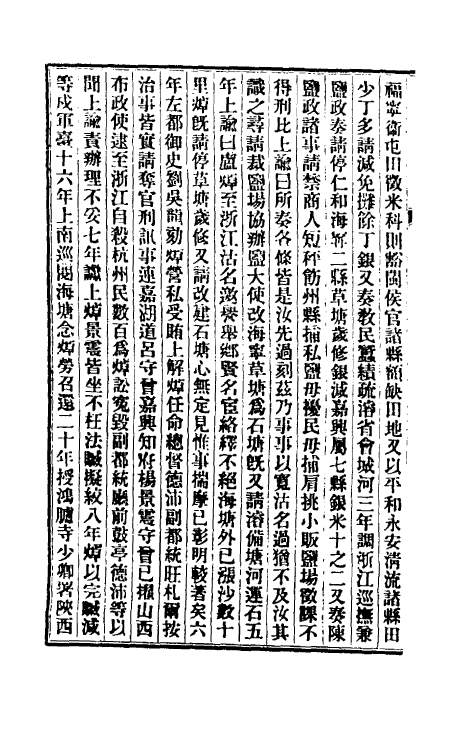 福寧衛屯田徵米科則豁閩侯官諸縣額缺田地又以平和永安清流諸縣田
少丁多請減免攤餘丁銀又奏敎民蠶績疏濬省會城河三年調浙江巡撫兼
鹽政奏請停仁和海寧二縣草塘歲修銀減嘉興屬七縣銀米十之二又奏陳
鹽政諸事請禁商人短秤飭州縣捕私鹽毋擾民毋捕肩挑小販鹽場徵課不
得刑比上諭曰所奏各條皆是汝先過刻茲乃事事以寬沽名過猶不及汝其
識之尋請裁鹽場協辦鹽大使改海寧草塘爲石塘旣又請濬備塘河運石五
年上諭曰盧焯至浙江沽名邀譽舉鄕賢名宦絡繹不絕海塘外已漲沙數十
里焯旣請停草塘歲修又請改建石塘心無定見惟事揣摩已彰明較著矣六
年左都御史劉吳龍劾焯營私受賄上解焯任命總督德沛副都統旺札爾按
治事皆實請奪官刑訊事連嘉湖道呂守曾嘉興知府楊景震守曾已擢山西
布政使逮至浙江自殺杭州民數百爲焯訟寃毀副都統廳前鼓亭德沛等以
聞上諭責辦理不妥七年讞上焯景震皆坐不枉法贓擬絞八年焯以完贓減
等戍軍臺十六年上南巡閱海塘念焯勞召還二十年授鴻臚寺少卿署陝西